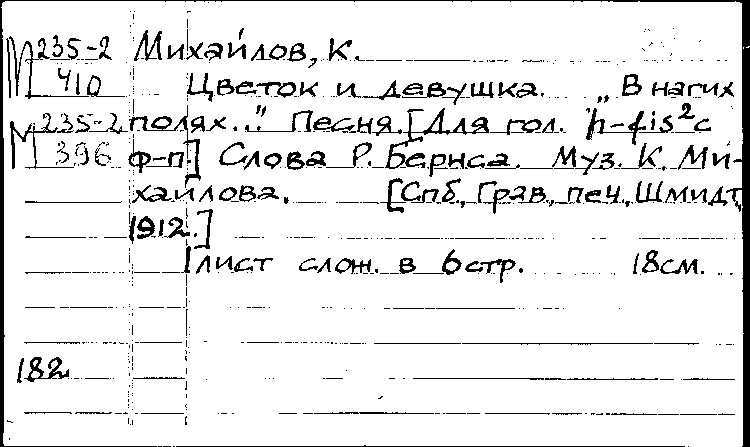 М 235-2 Михайлов, К.
410 Цветок и девушка. „В нагих
М 235-2 полях..." Песня. [Для гол. h-fis² с
396 ф-п.] Слова Р. Бернса. Муз. К. Ми-
хайлова. [Спб., Грав. печ. Шмидт,
1912.]
1 лист слож. в 6 стр. 18 см.
182